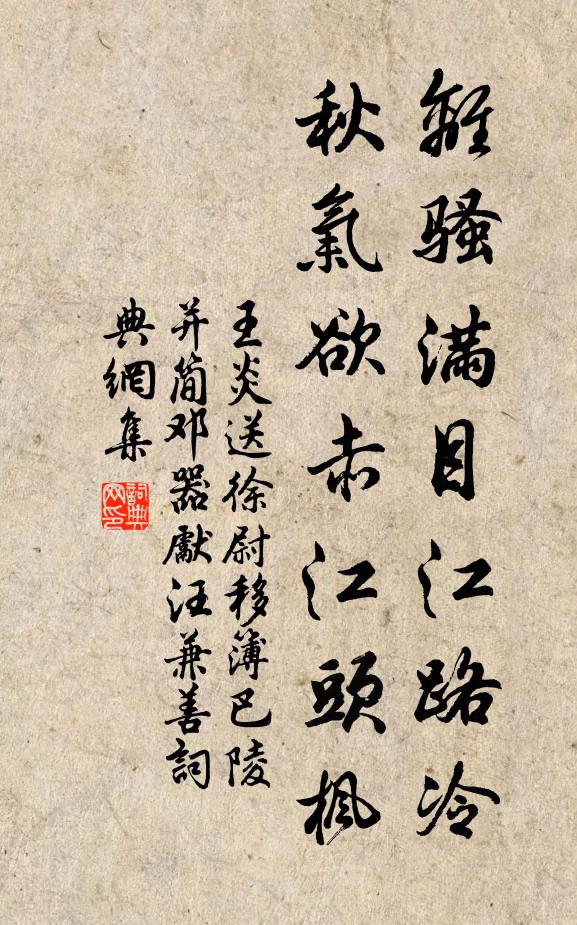 離騷滿目江路冷
秋氣欲赤江頭楓
王炎送徐尉移簿巴陵
并简邓器獻汪兼善詞
典網集
詞典
网印